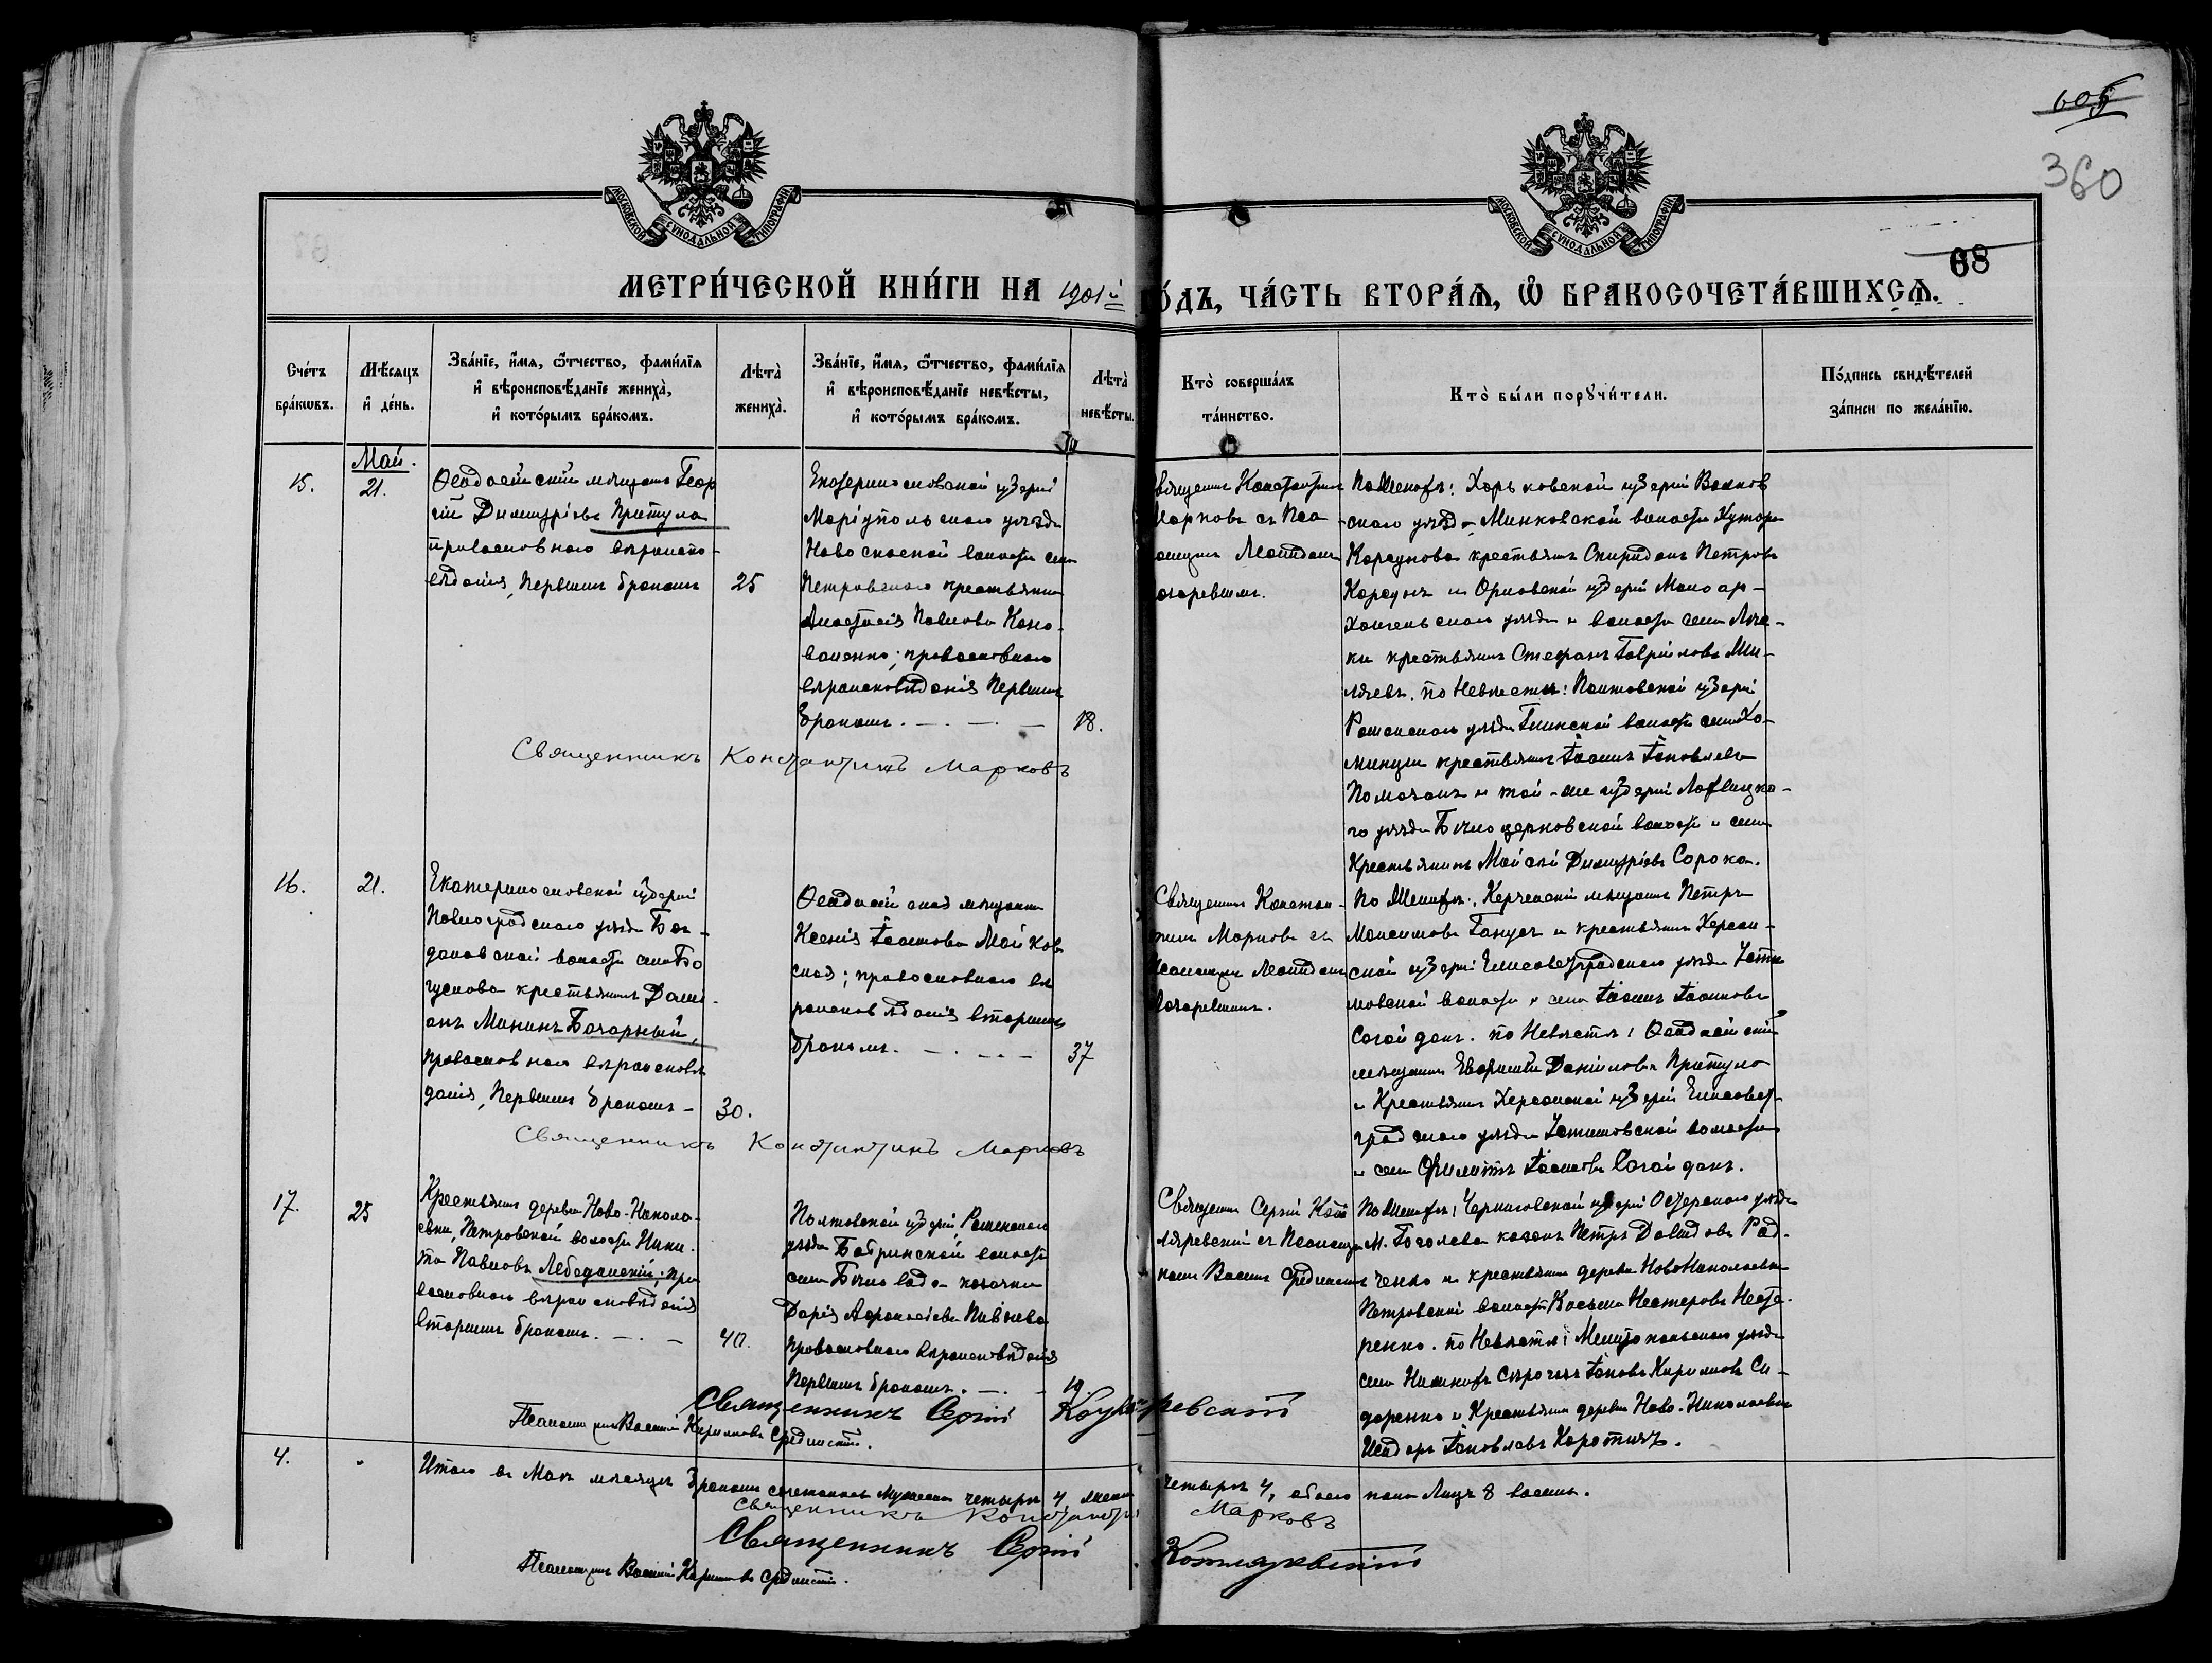 605
360
МОСКОВСКОЙ СУНОДАЛЬНОЙ ТИПОГРАФІИ
МОСКОВСКОЙ СУНОДАЛЬНОЙ ТИПОГРАФІИ
68
МЕТРИ́ЧЕСКОЙ КНИ́ГИ НА 1901й ГО́ДЪ, ЧА́СТЬ ВТОРА́Я, Ѡ БРАКОСОЧЕТА́ВШИХСЯ.
Сче́тъ
бра́кѡвъ.
Мѣ́сяцъ
и҆ де́нь.
Зва́нїе, и҆́мя, ѻ҆́тчество, фами́лїя
и҆ вѣроисповѣ́данїе жениха̀,
и҆ кото́рымъ бра́комъ.
Лѣта̀
жениха̀.
Зва́нїе, и҆́мя, ѻ҆́тчество, фами́лїя
и҆ вѣроисповѣ́данїе невѣ́сты,
и҆ кото́рымъ бра́комъ.
Лѣта̀
невѣ́сты.
Кто̀ соверша́лъ
та́инство.
Кто̀ бы́ли порꙋчи́тели.
По́дпись свидѣ́телей
за́писи по жела́нїю.
Май.
15.
21.
Ѳеодосійскій мѣщанинъ Геор
гій Димитріевъ Притула
православнаго вѣроиспо-
вѣданія, первымъ бракомъ
25
Екатеринославской губерніи
Маріупольскаго уѣзда
Новоспаской волости села
Петровскаго крестьянка
Анастасія Павлова Коно-
валенко; православнаго
вѣроисповѣданія первымъ
бракомъ. — . — . —
18.
Священникъ Константинъ
Марковъ съ Пса
ломщик Леонидомъ
По Женихѣ: Харьковской губерніи Валков
скаго уѣзда Минковской волости Хутора
Корсунова крестьянинъ Спиридонъ Петровъ
Корсунъ и Орловской губерніи Мало ар-
хангельскаго уѣзда и волости села Луча-
ки крестьянинъ Стефанъ Гавріиловъ Ми-
ляевъ. по Невѣстѣ: Полтавской губерніи
Роменскаго уѣзда Глинской волости села Хо-
минцы крестьянинъ Іоаннъ Іаковлевъ
Помазанъ и той-же губерніи Лохвицка-
го уѣзда Бѣлоцерковской волости и села
Крестьянинъ Моисей Димитріевъ Сорока.
Священникъ Константинъ Марковъ
16.
21.
Екатеринославской губерніи
Павлоградскаго уѣзда Бог-
дановской волости села Бо
гуслова крестьянинъ Даміанъ
Мининъ Бочарный,
православнаго вѣроисповѣ
данія, первымъ бракомъ —
30.
Ѳеодосійская мѣщанка
Ксенія Іоаннова Майков
ская; православнаго вѣ
роисповѣданія вторымъ
бракомъ. — . — . —
37
Священникъ Констан-
тинъ Марковъ съ
Псаломщик Леонидомъ
По Женихѣ: Керченскій мѣщанинъ Петръ
Максимовъ Ганусъ и крестьянинъ Херсон-
ской губерніи Елисаветградскаго уѣзда
волости и села Іоаннъ Іоанновъ
Согайданъ. по Невѣстѣ: Ѳеодосійскій
мѣщанинъ Данииловъ Притула
и Крестьянинъ Херсонской губерніи Елисавет-
градскаго уѣзда волости
и села Филиппъ Іоанновъ Согайданъ.
Священникъ Константинъ Марковъ
17.
25
Крестьянинъ деревни Ново-Николае-
вки, Петровской волости Ники-
та Павловъ Лебединскій; пра
вославнаго вѣроисповѣданія
вторымъ бракомъ. — . —
40.
Полтавской губерніи, Роменскаго
уѣзда волости
села казачка
Дарія Аѳанасіева Пивнева
православнаго вѣроисповѣданія
первымъ бракомъ. — . —
19.
Священникъ Сергій Кот
ляревскій съ Псаломщи
комъ Васил. Срединскимъ
По Женихѣ: Черниговской губерніи Остерскаго уѣзда
м. Гоголева казакъ Петръ Давидовъ Рад-
ченко и крестьянинъ деревни Ново Николаевки
Петровской волости Косьма Нестеровъ Несте-
ренко. по Невѣстѣ: Мелитопольскаго уѣзда
села Іаковъ Кириловъ Си-
доренко и Крестьянинъ деревни Ново-Николаевки
Исидоръ Іаковлевъ Коротичъ.
Священникъ Сергій Котляревскій
Псаломщикъ Василій Кириловъ Срединскій.
4.
Итого въ Маѣ мѣсяцѣ бракомъ сочеталось мужеска четыре 4, женска четыре 4, обоего пола лицъ 8 восемь.
Священникъ Константинъ Марковъ
Священникъ Сергій Котляревскій
Псаломщикъ Василій Кириловъ Срединскій.